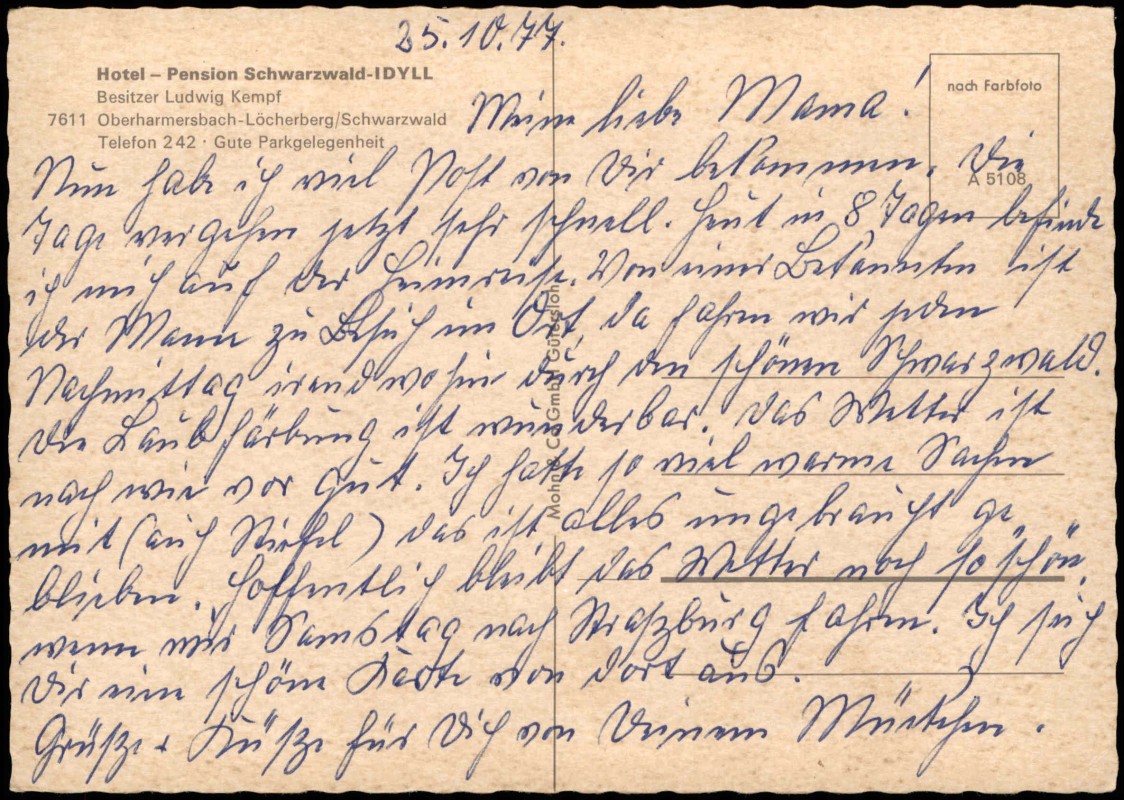 25.10.77.
Hotel – Pension Schwarzwald-IDYLL
Besitzer Ludwig Kempf
7611 Oberharmersbach-Löcherberg/Schwarzwald
Telefon 242 · Gute Parkgelegenheit
nach Farbfoto
A 5108
Mohn & Co GmbH Gütersloh
Meine liebe Mama!
Nun habe ich viel Post von Dir bekommen. Die
Tage vergehen jetzt sehr schnell. Heut in 8 Tagen befinde
ich mich auf der Heimreise. Von einer Bekannten ist
der Mann zu Besuch im Ort, da fahren wir jeden
Nachmittag irendwohin durch den schönen Schwarzwald.
Die Laubfärbung ist wunderbar. Das Wetter ist
nach wie vor gut. Ich hatte so viel warme Sachen
mit (auch Stiefel) das ist alles ungebraucht ge„
blieben. Hoffentlich bleibt das Wetter noch so schön,
wenn wir Samstag nach Straszburg fahren. Ich such
Dir eine schöne Karte von dort aus.
Grüsze + Küsze für Dich von Deinem